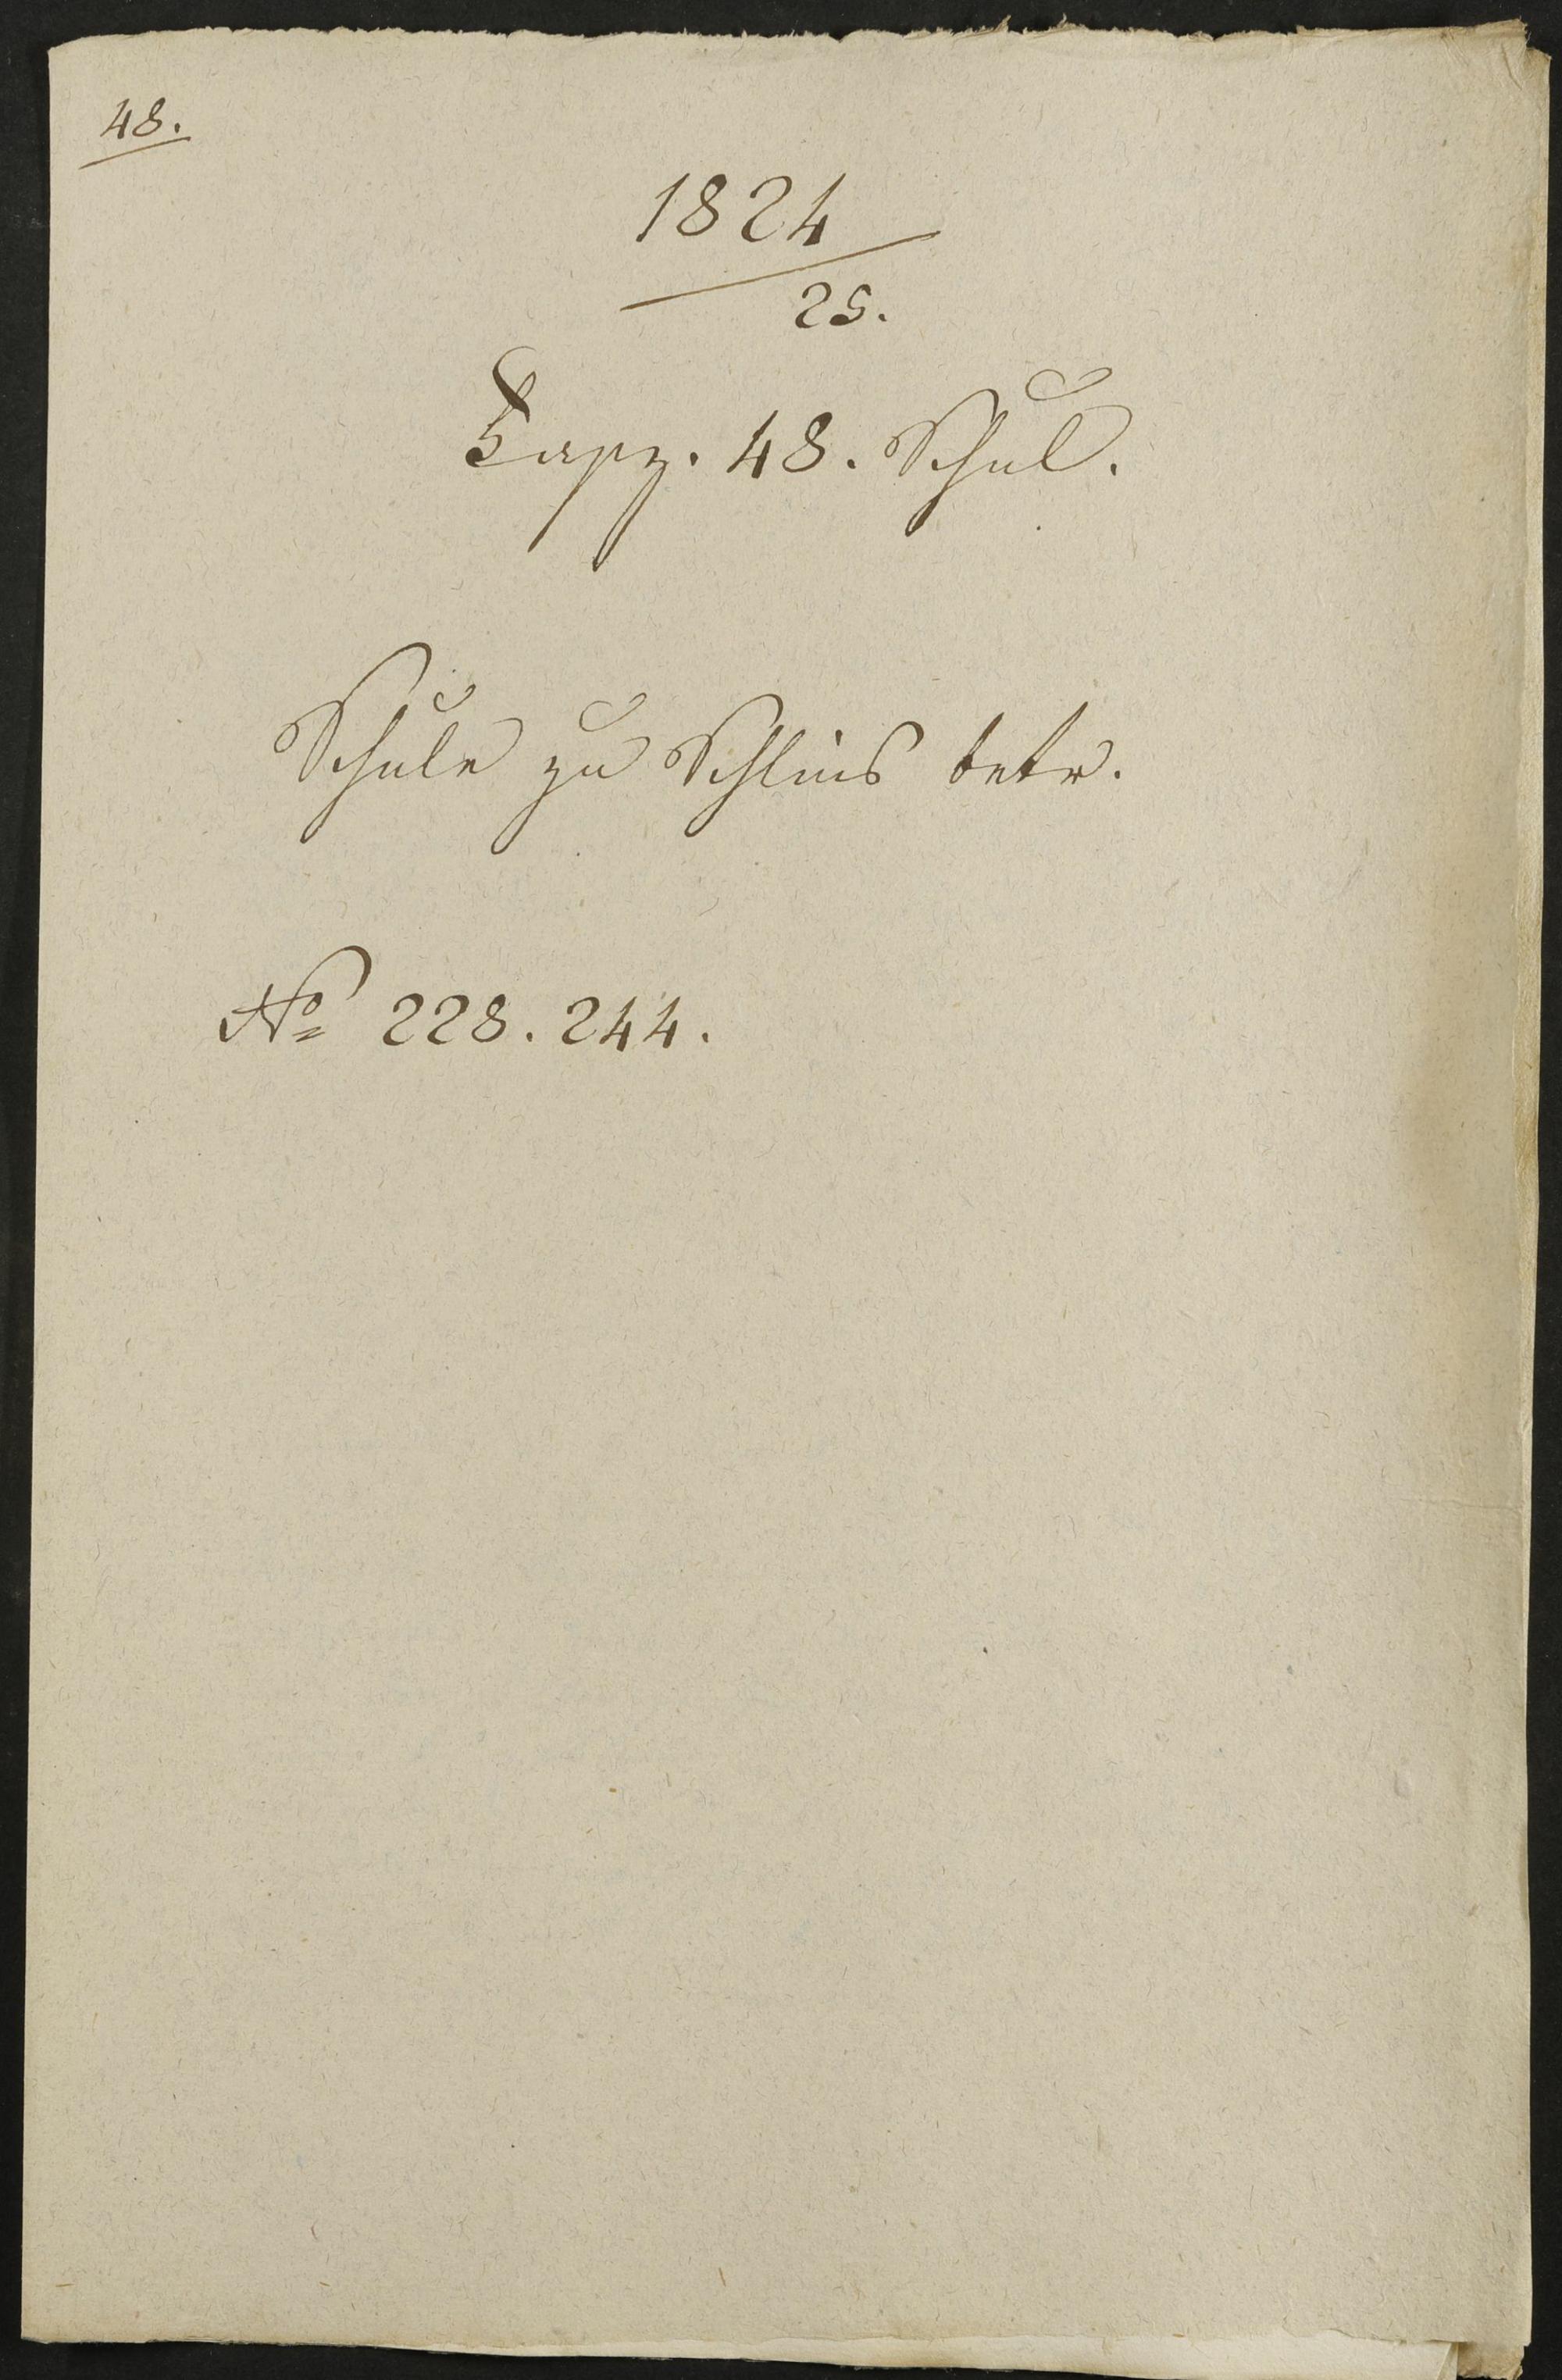 48.
1824
25.
Fasz. 48. Schul.
Schule zu Schlins betr.
No 228. 244.